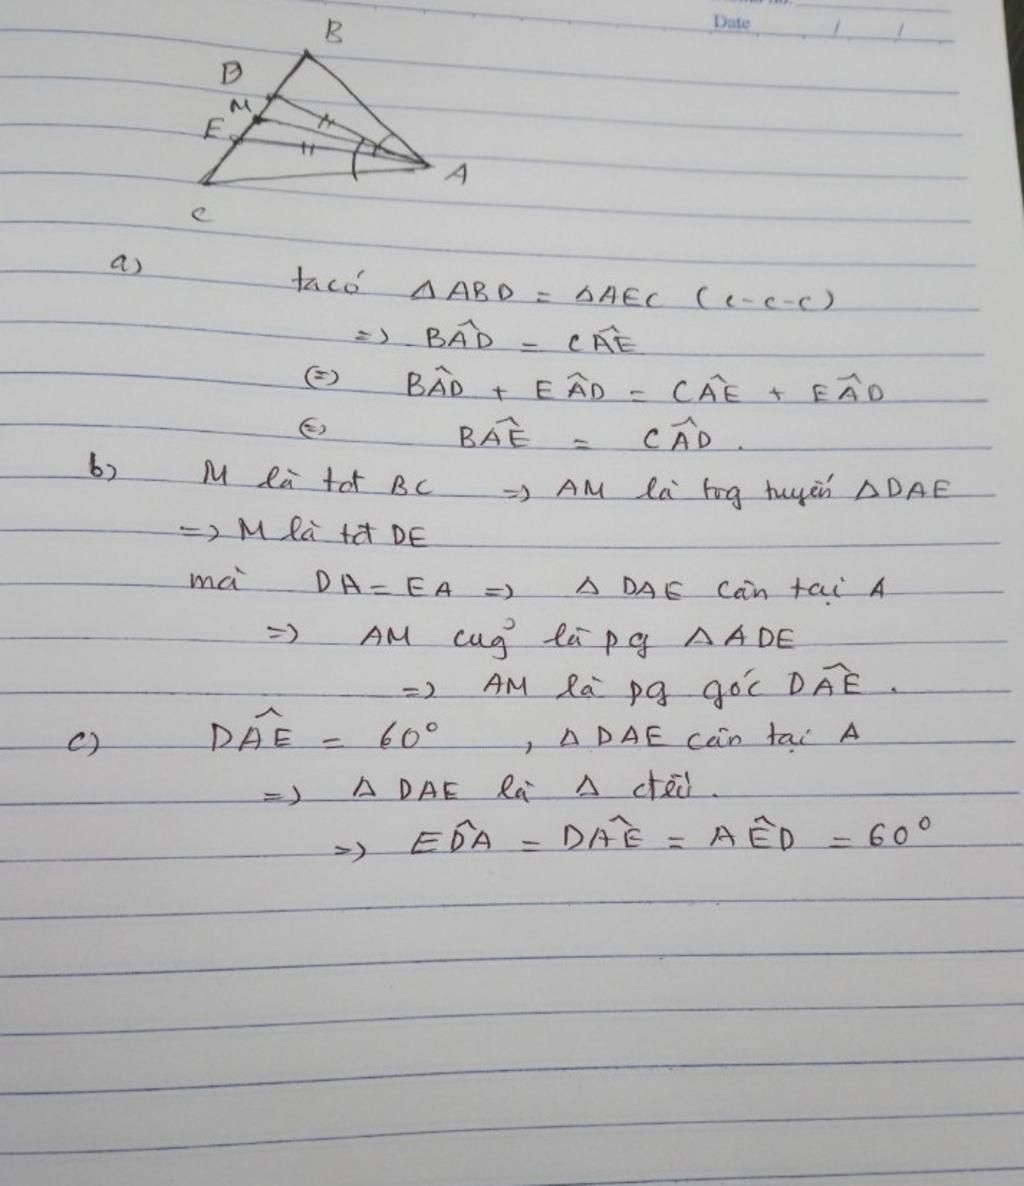 Date / /
B
D
M
E
A
C
a) ta có ΔABD = ΔAEC (c-c-c)
=> BÂD = CÂE
(=) BÂD + EÂD = CÂE + EÂD
(=) BÂE = CÂD.
b) M là tđt BC => AM là trg tuyến ΔDAE
=> M là tđt DE
mà DA = EA => Δ DAE cân tại A
=> AM cug̉ là pg ΔADE
=> AM là pg góc DÂE.
c) DÂE = 60°, Δ DAE cân tại A
=> Δ DAE là Δ đều.
=> ED̂A = DÂE = AÊD = 60°